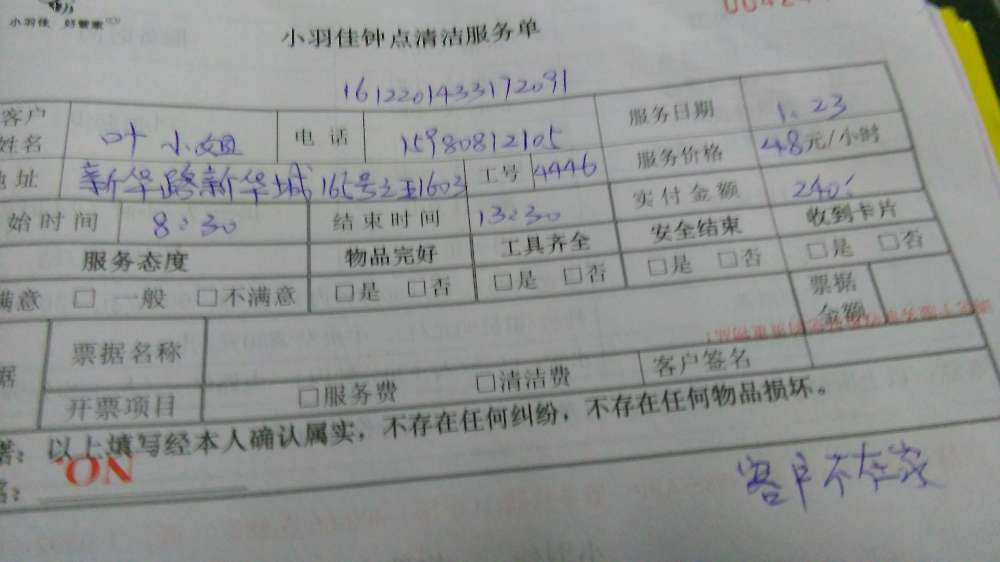 小羽佳 好管家
小羽佳钟点清洁服务单
1612201433172091
客户姓名 叶小姐 电话 15980812105 服务日期 1.23
地址 新华路新华城165号之五1603 工号 4446 服务价格 48元/小时
始时间 8:30 结束时间 13:30 实付金额 240.
服务态度 物品完好 工具齐全 安全结束 收到卡片
满意 □ 一般 □不满意 □是 □否 □是 □否 □是 □否 □是 □否
据 票据名称 票据金额
开票项目 □服务费 □清洁费 客户签名
署: 以上填写经本人确认属实，不存在任何纠纷，不存在任何物品损坏。
NO
客户不在家